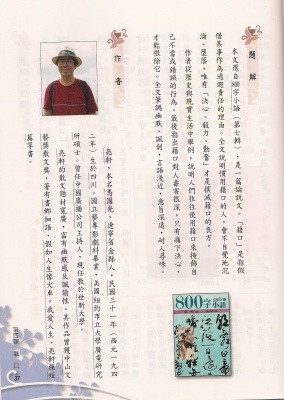 題解
本文選自800字小語(第七輯),是一篇論說文。「藉口」是假
借某事作為逃避責任的理由。全文說明慣用藉口的人,會不自覺地沉
淪、墮落,唯有「決心、毅力、勤奮」才是撲滅藉口的良方。
作者從歷史與現實生活中舉例,說明人們往往使用藉口來掩飾自
己不當或錯誤的行為。最後指出藉口對人毒害很深,只有痛下決心,
才能根除它。全文筆調幽默、諷刺,言語淺近,意旨深遠,耐人尋味。
800字小語
作者
亮軒,本名馬國光,遼寧省金縣人,民國三十一年(西元一九四
二年)生於四川。國立藝專影劇科畢業,美國紐約市立大學廣電研究
所碩士。曾任中國廣播公司主持人,現任教於世新大學。
亮軒的散文題材寬廣,富有幽默感及諷諭性。其作品曾獲中山文
藝獎散文獎,著有書鄉細語、假如人生像火車,我愛人生、亮軒極短
篇等書。
藉口 37